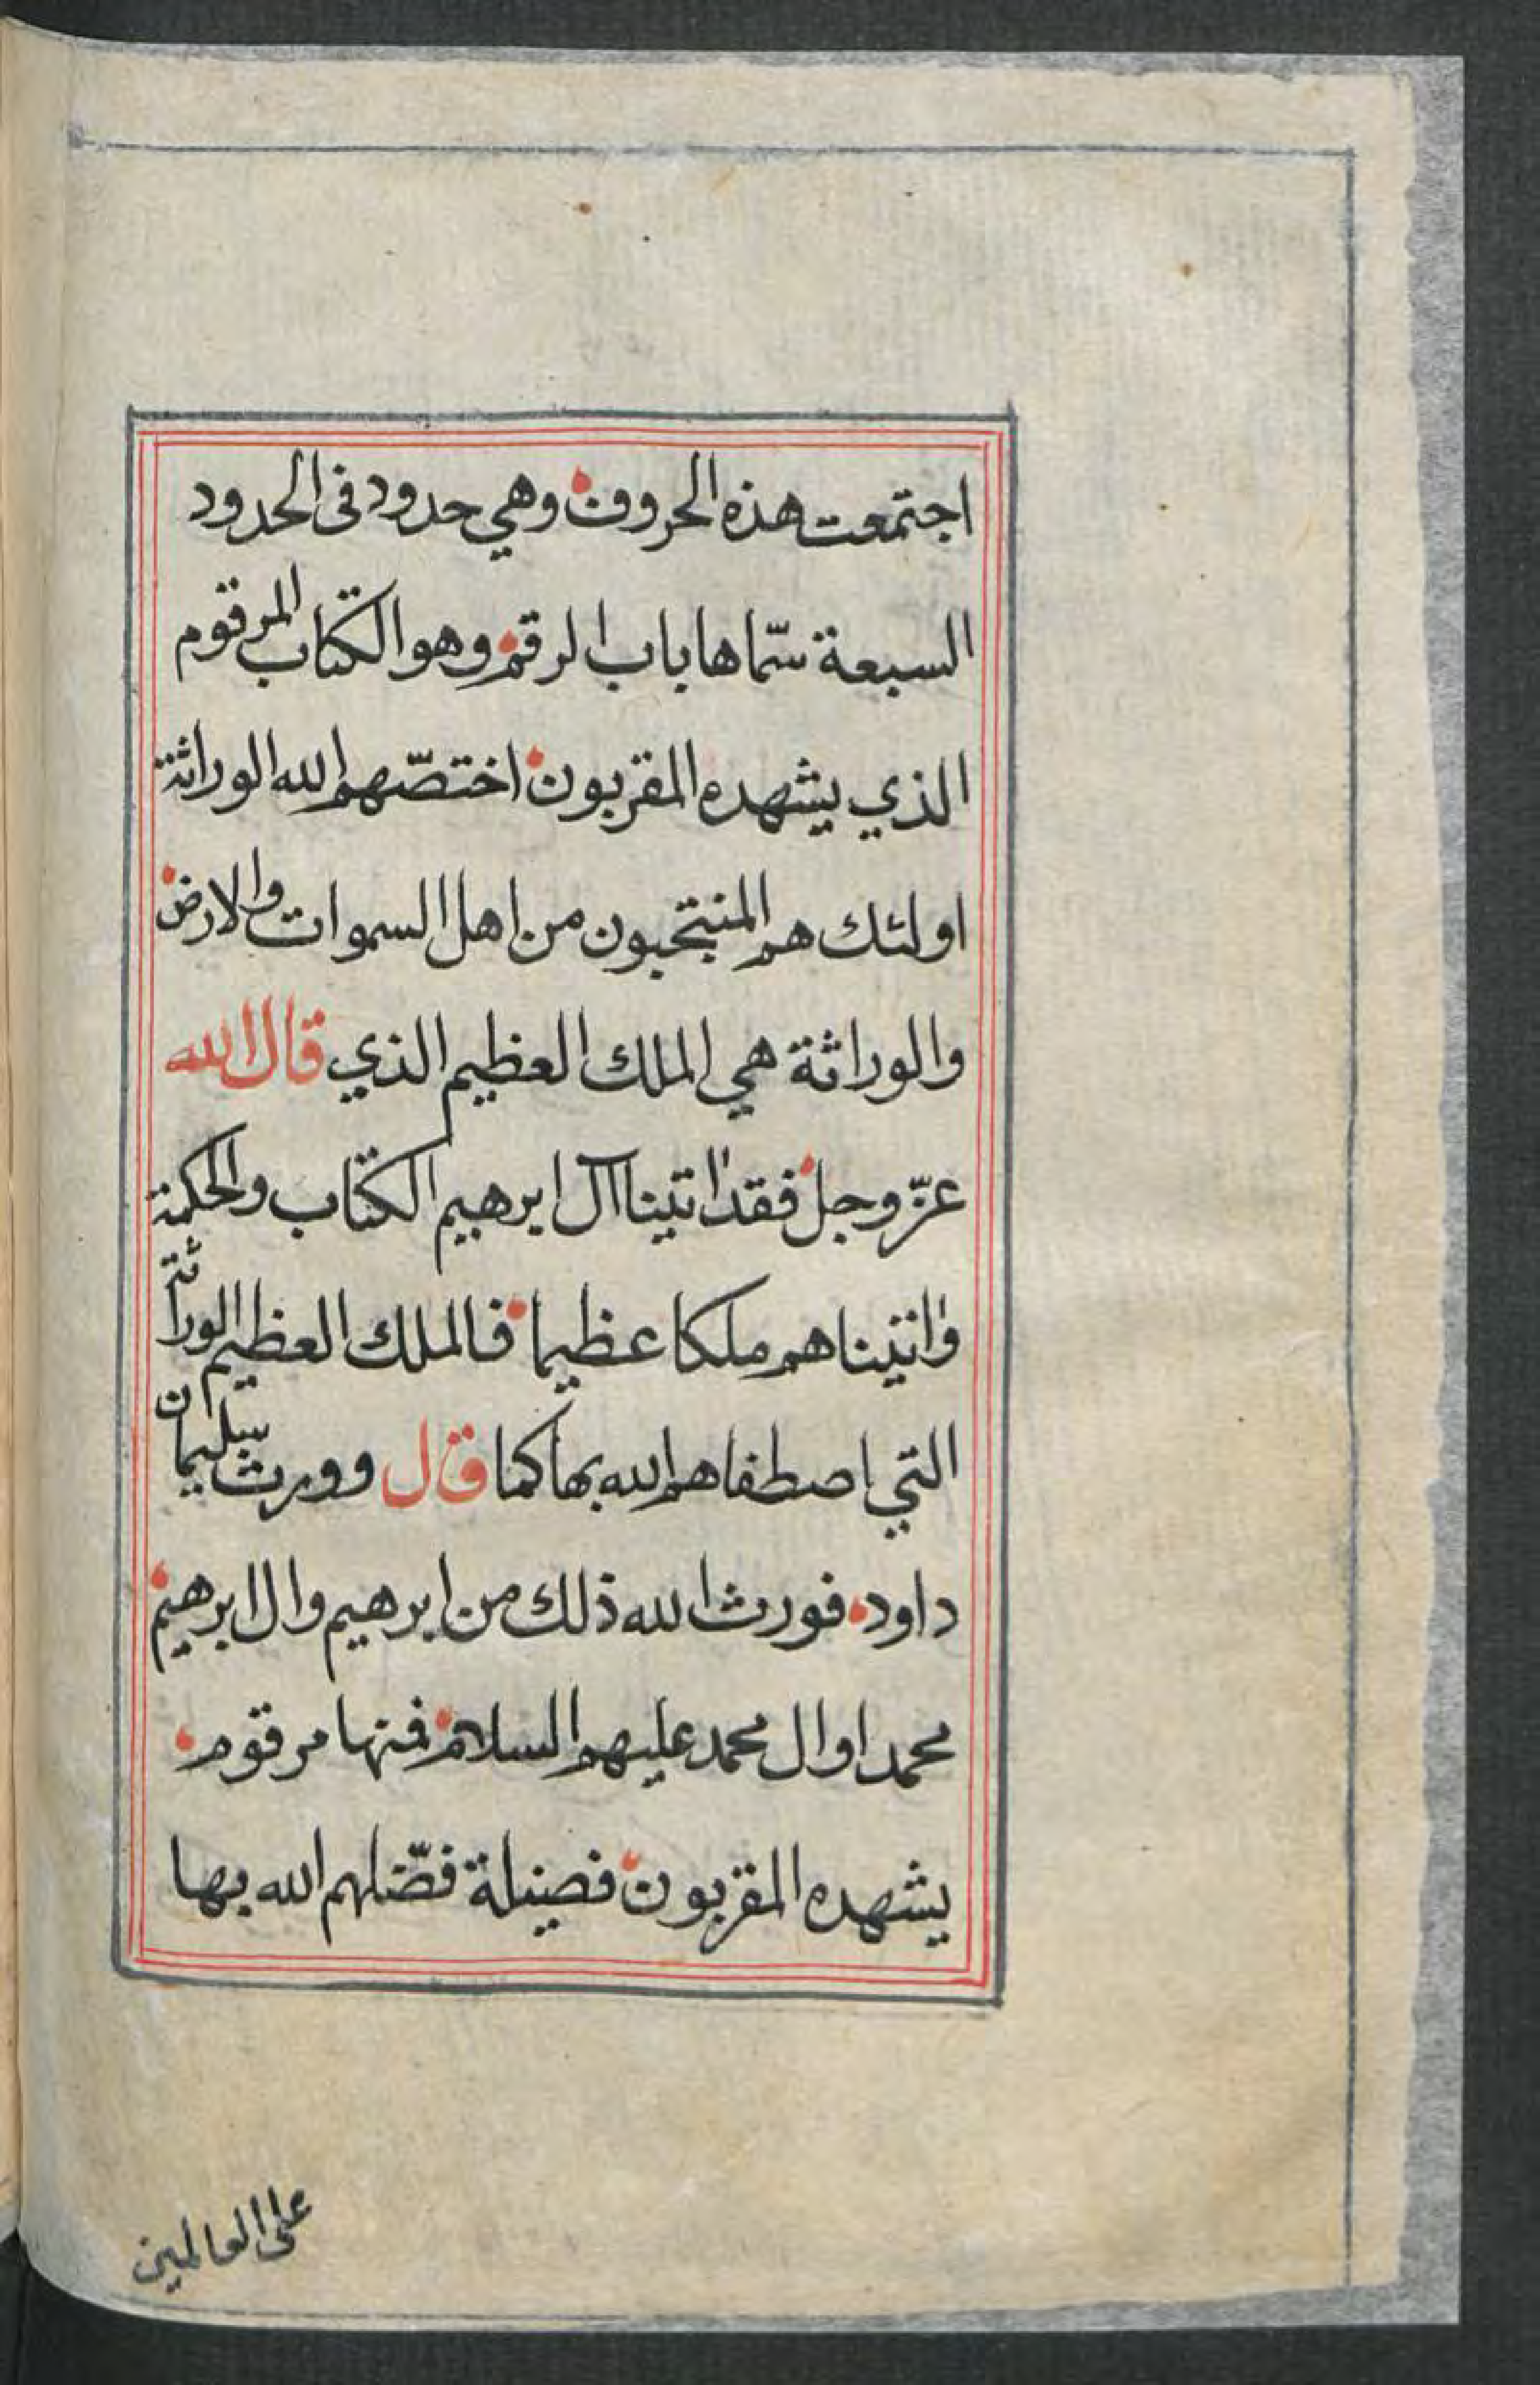 اجتمعت هذه الحروف وهي حدود في الحدود
السبعة سمّاها باب الرقم وهو الكتاب المرقوم
الذي يشهده المقربون اختصّهم الله الوراثة
اولئك هم المنتجبون من اهل السموات والارض
والوراثة هي الملك العظيم الذي قال الله
عزّ وجل فقد اتينا آل ابرهيم الكتاب والحكمة
واتيناهم ملكا عظيما فالملك العظيم الوراثة
التي اصطفاهم الله بها كما قال وورث سليمان
داود فورث الله ذلك من ابرهيم وال ابرهيم
محمدا وال محمد عليهم السلام فمنها مرقوم
يشهده المقربون فضيلة فضّلهم الله بها
على العالمين